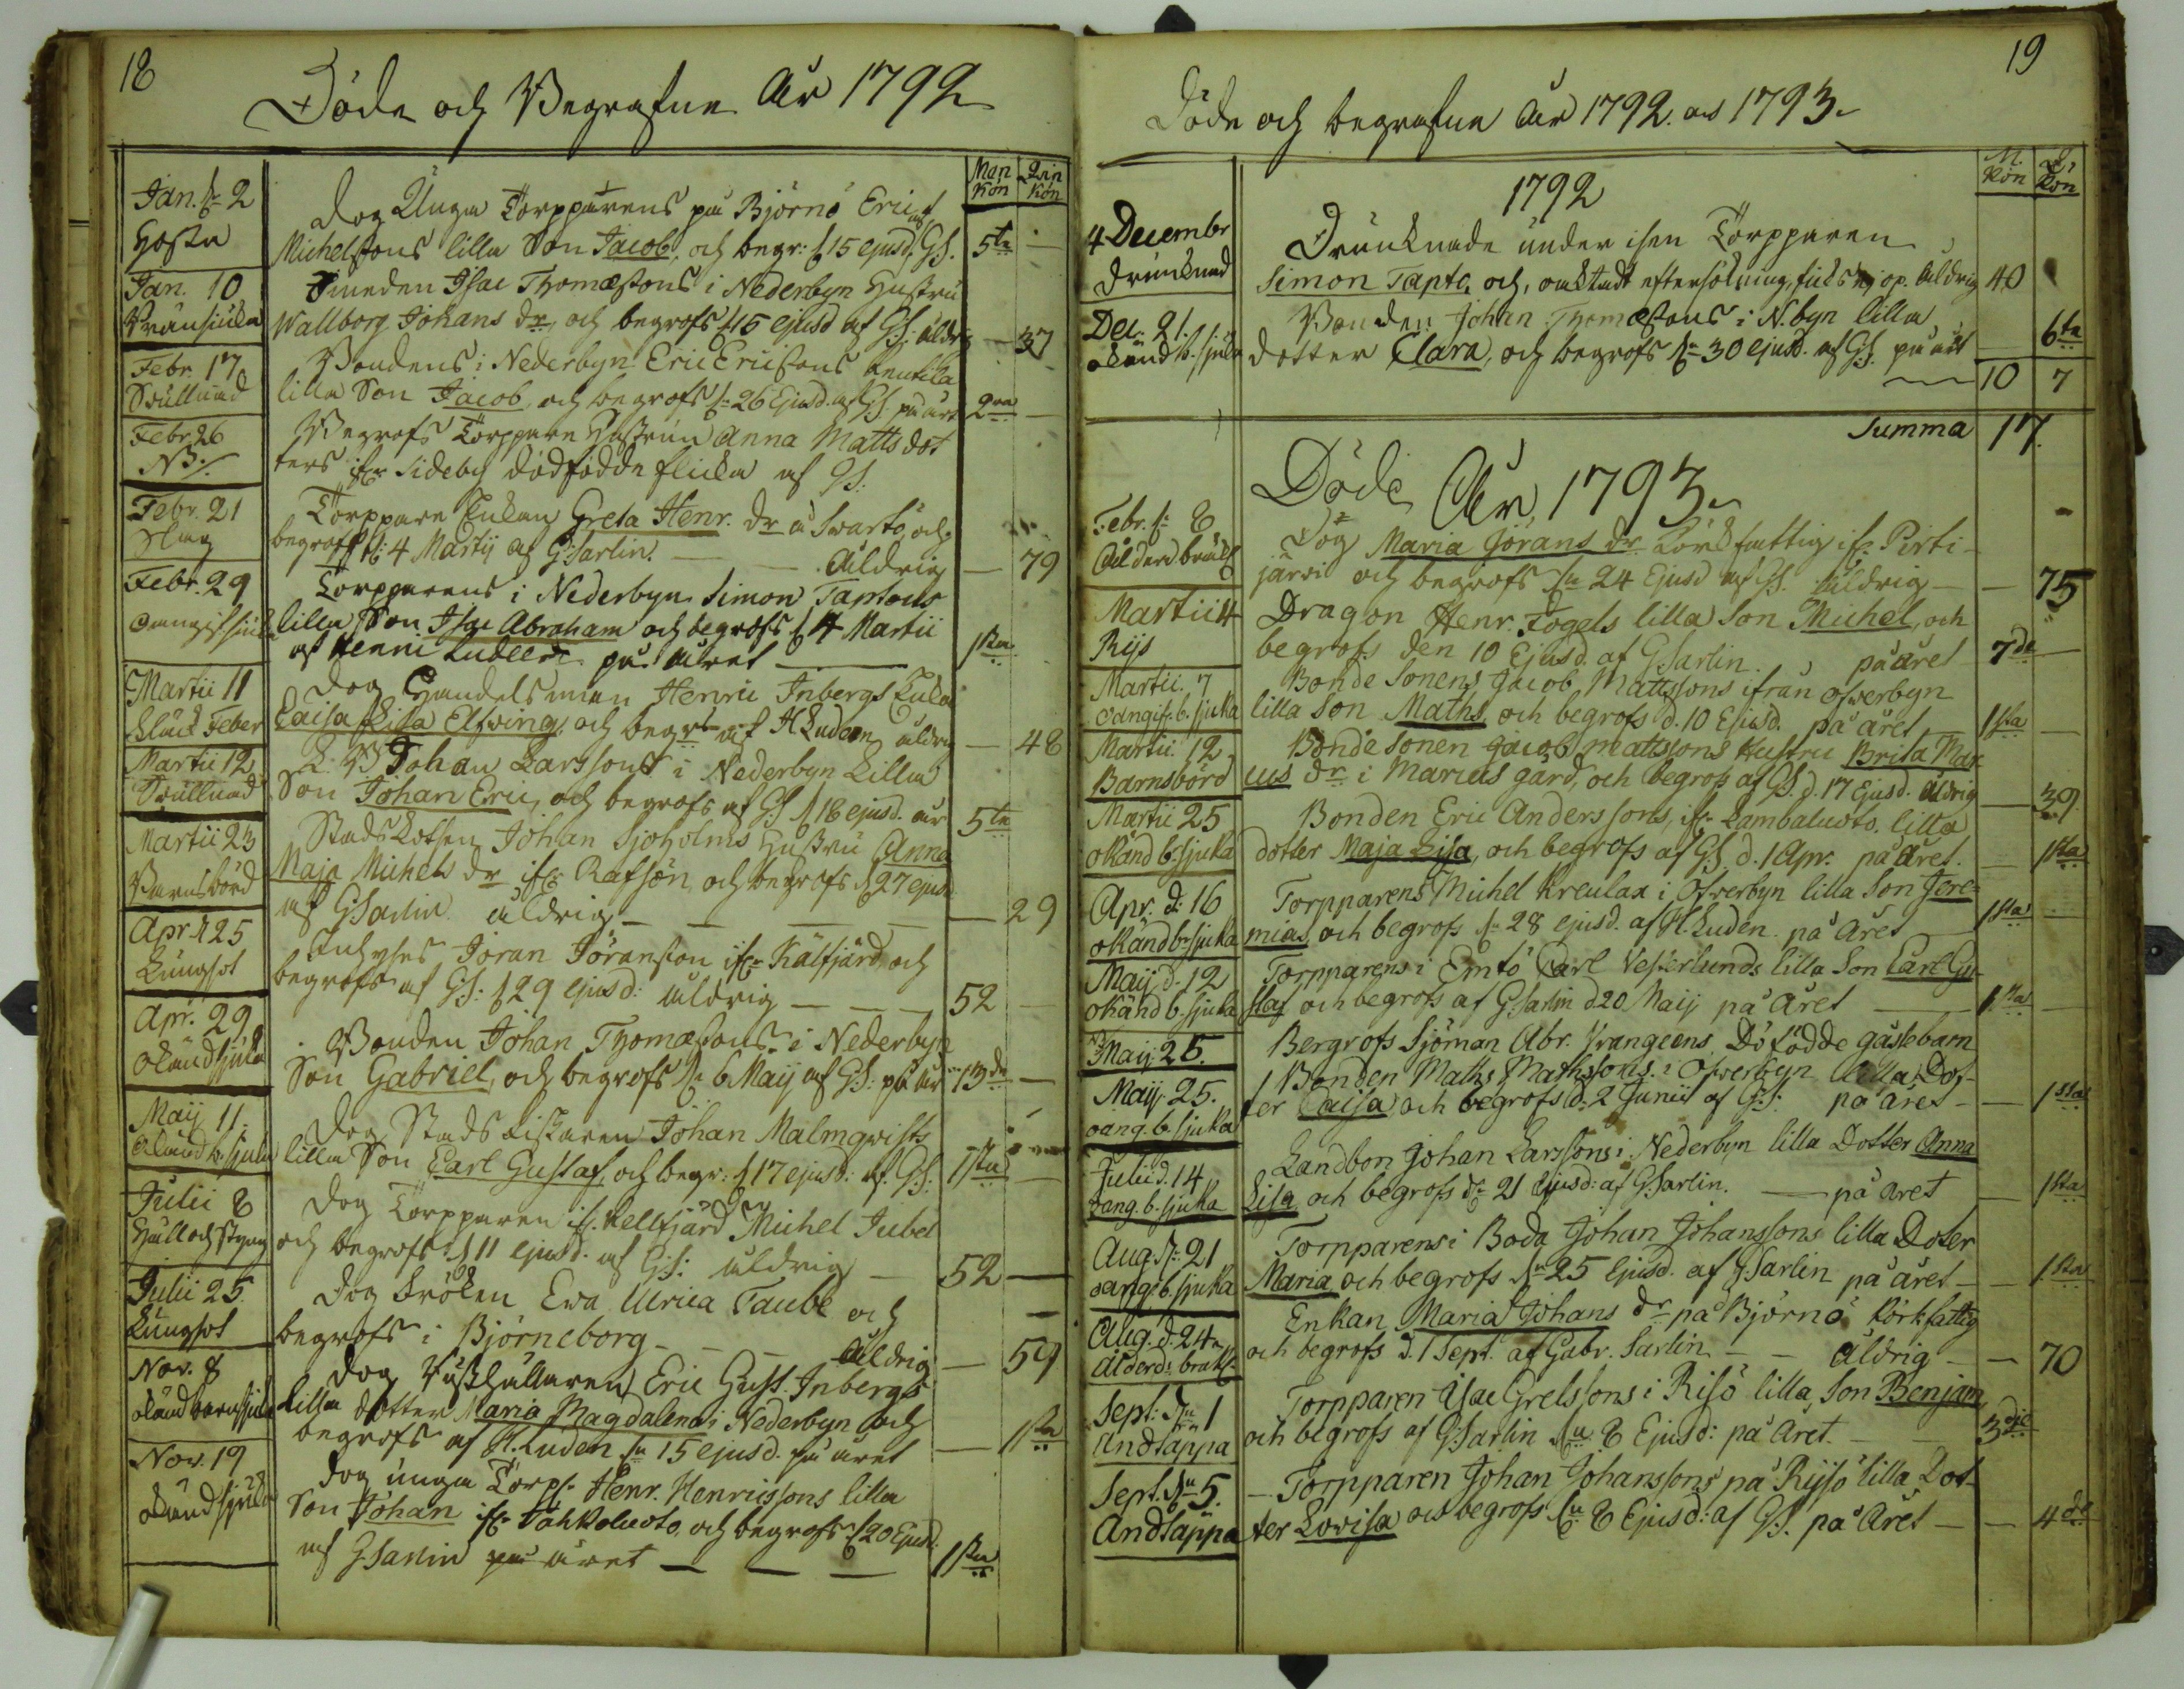 18
Döde och Begrafne År 1792
Man Kön
Qvin Kön
Jan. d. 2
Hosta
Dog Unga Torpparens på Björnö Eric
Michelssons lilla Son Jacob, och begr: d 15 ejusd. af GS.
5te
Jan. 10
Bränsjuka
Smeden Isac Thomæssons i Nederbyn Hustru
Wallborg Johans dr, och begrofs d 15 ejusd af GS. åldrig
37
Febr. 17
Svullnad
Bondens i Nederbyn Eric Ericssons Kentila
lilla Son Jacob, och begrofs d. 26 Ejusd. af GS. på året
2ra
Febr. 26
NB.
Begrofs Torppare Hustrun Anna Matts dot
ters ifr. Sideby dödfödde flicka af GS:
Febr. 21
Slag
Torppare Enkan Greta Henr. dr å Svartö, och
begrofs d: 4 Martij af GSarlin. Åldrig
79
Febr. 29
oangif. sjuk
Torpparens i Nederbyn Simon Taptous
lilla Son Isac Abraham och begrofs d 4 Martii
af Henric Ludeen på året
1sta
Martii 11
Fläck Feber
Dog Handelsman Henric Inbergs Enka
Caisa Lisa Elfving, och begr. af H Ludeen åldrig
48
Martii 12
Svullnad
L. B. Johan Larssons i Nederbyn Lilla
Son Johan Eric, och begrofs af GS d 18 ejusd. år
5te
Martii 23
Barnsbörd
Stads Lotsen Johan Sjöholms Hustru Anna
Maja Michels dr ifr. Rafsön, och begrofs d 27 ejusd
af GSarlin åldrig
29
Apr. d 25
Lungsot
Inhyses Jöran Jöransson ifr. Kälfjärd och
begrofs af GS: d 29 ejusd: åldrig
52
Apr. 29
okänd sjuka
Bonden Johan Thomæssons i Nederbyn
Son Gabriel, och begrofs d. 6 Maij af GS: på år
13de
Maij 11.
okänd b. sjuka
Dog Stads Fiskaren Johan Malmqvists
lilla Son Carl Gustaf, och begr: d 17 ejusd: af GS:
1sta
Julii 8
Håll och styng
Dog Torpparen if. Kellfjärd Michel Jubel
och begrofs d 11 ejusd. af GS: åldrig
52
Julii 25.
Lungsot
Dog Fröken Ewa Ulrica Taube och
begrofs i Björneborg Åldrig
59
Nov. 8
okänd barnsjuka
Dog Eric Gust. Inbergs
Lilla dotter Maria Magdalena i Nederbyn och
begrofs af H. Luden d. 15 ejusd. på året
1sta
Nov. 19
okänd sjuka
Dog unga Torp. Henr. Henricssons lilla
Son Johan ifr. Tohkoluoto och begrofs d 20 Ejusd.
af GSarlin på året
1sta
19
Döde och begrafne År 1792. och 1793.
M. Kön
Q. Kön
1792
4 Decembr
Drunknad
Drunknade under isen Torpparen
Simon Tapto, och, oaktadt eftersökning, ficks ej op. Åldrig
40
Dec. 21.
okänd b. sjuka
Bonden Johan Thomæssons i N.byn lilla
dotter Clara, och begrofs d. 30 ejusd. af GS. på åt
6te
10
7
Summa
17.
Döde År 1793.
Febr. d. 8
Ålderd. bräckl.
Dog Maria Jörans dr Körkfattig if. Pirti-
järvi och begrofs d. 24 Ejusd af GS. åldrig
75
Martii 4
Rijs
Dragon Henr. Fogels lilla Son Michel, och
begrofs den 10 Ejusd. af GSarlin. på året
7de
Martii. 7
oangif. b. sjuka
Bonde Sonens Jacob Mattssons ifrån öfwerbyn
lilla Son Maths, och begrofs d. 10 Ejusd. på året
1sta
Martii 12.
Barnsbörd
Bonde Sonen Jacob Mattssons Hustru Brita Mar
cus dr i Marcus gård, och begrofs af GS. d. 17 Ejusd. Åldrig
39
Martii 25
okänd b. sjuka
Bonden Eric Anderssons, ifr. Lambaluoto. lilla
dotter Maja Lisa, och begrofs af GS. d. 1 Apr. på Året.
1sta
Apr. d. 16
okänd b. sjuka
Torpparens Michel Kreulax i Öfwerbyn lilla Son Jere-
mias, och begrofs d. 28 ejusd. af H. Luden på Året
1sta
Maij d. 12
okänd b. sjuka
Torpparens i Emtö Carl Vesterlunds lilla Son Carl Gu-
staf och begrofs af GSarlin d 20 Maij på Året
1sta
Maij 25.
Bergrofs Sjöman Abr. Vrangeens Döfödde gåssebarn
Maij 25.
oang. b. sjuka
Bonden Maths Mathssons i Öfwerbyn lilla Dot-
ter Caisa och begrofs d: 2 Junii af GS: på året
1sta
Julii d. 14
oang. b. sjuka
Landbon Johan Larssons i Nederbyn lilla Dotter Anna
Lisa och begrofs d: 21 Ejusd: af GSarlin. på året
1sta
Aug. d: 21
oang. b. sjuka
Torpparens i Boda Johan Johanssons lilla Doter
Maria och begrofs d. 25 Ejusd. af GSarlin på året
1sta
Aug. d. 24
ålderd: bräkl.
Enkan Maria Johans dr på Björnö Körkfattig
och begrofs d. 1 Sept. af Gabr. Sarlin Åldrig
70
Sept. d. 1
Andtäppa
Torpparen Isac Gretssons i Risö lilla Son Benjam
och begrofs af GSarlin d. 8 Ejusd: på Året.
3dje
Sept. d. 5.
Andtäppa
Torpparen Johan Johanssons på Rijsö lilla Dot
ter Lovisa och begrofs d. 8 Ejusd: af GS. på Året
4de